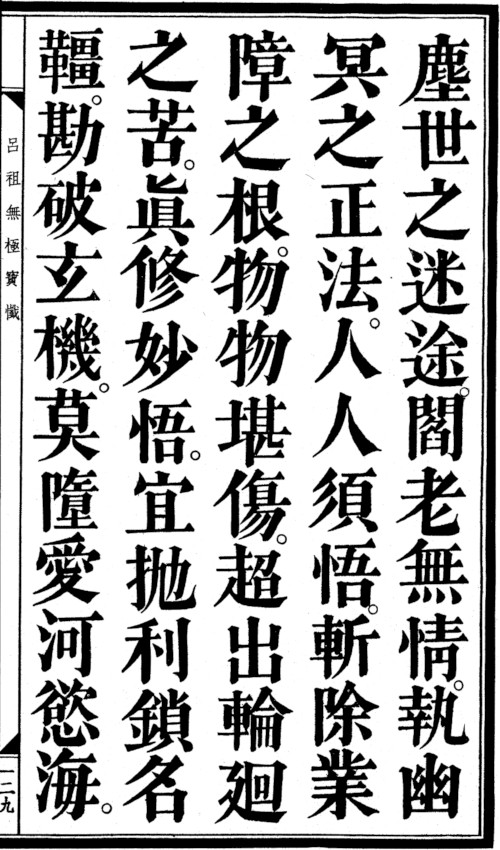 塵世之迷途。閻老無情。執幽
冥之正法。人人須悟。斬除業
障之根。物物堪傷。超出輪廻
之苦。眞修妙悟。宜抛利鎖名
韁。勘破玄機。莫墮愛河慾海。
呂祖無極寶懺
一二九